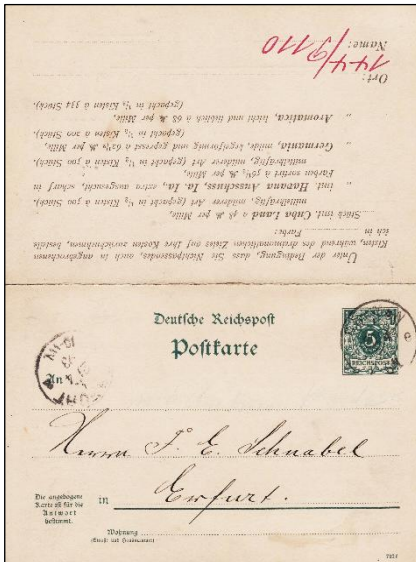 Unter der Bedingung, dass Sie Nichtpassendes, auch in angebrochenen
Kisten, während des dreimonatlichen Zieles auf Ihre Kosten zurücknehmen, bestelle
ich in Farbe:
Stück imt. Cuba Land à 48 M. per Mille,
mittelkräftig, milderer Art (gepackt in Kisten à 500 Stück),
" imt. Havana Ausschuss, Ia. Ia., extra ausgesucht, scharf in
Farben sortirt à M. per Mille,
mittelkräftig, milderer Art (gepackt in Kisten à 500 Stück),
" Germania, milde, kegelförmig und gepresst à M. per Mille,
(gepackt in Kisten à 200 Stück),
" Aromatica, leicht und lieblich à 68 M. per Mille,
(gepackt in 1/3 Kisten à 334 Stück).
Ort:
Name:
144/9110
Deutsche Reichspost
Postkarte
5
REICHSPOST
An
Herrn F. E. Schnabel
in Erfurt.
Die angebogene
Karte ist für die
Antwort
bestimmt.
Wohnung
(Straße und Hausnummer)